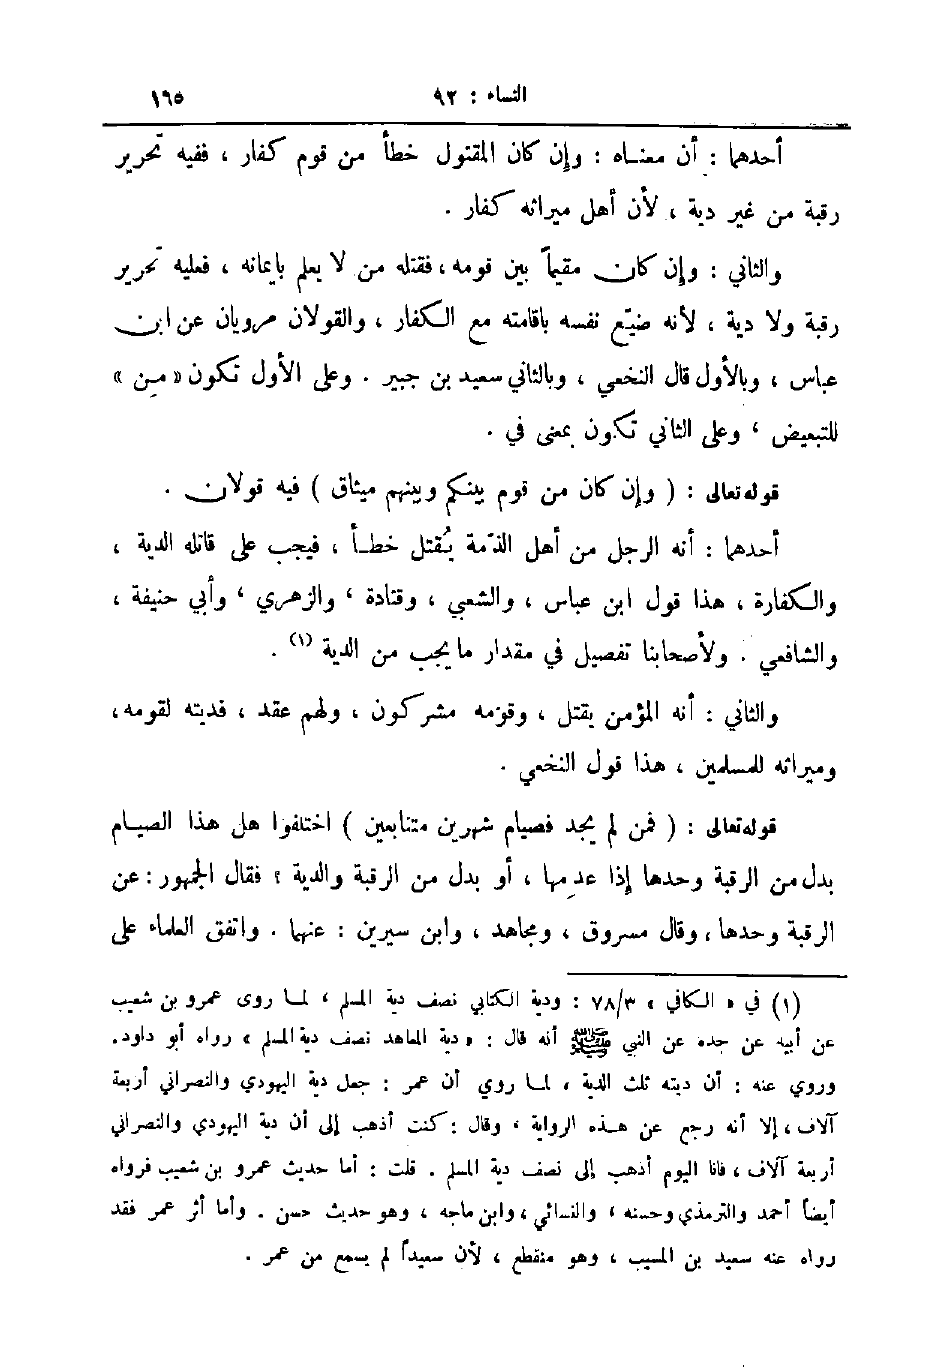 النساء : ٩٢ ١٦٥
أحدهما : أن معنـاه : وإن كان المقتول خطأ من قوم كفار ، ففيه تحرير
رقبة من غير دية ، لأن أهل ميراثه كفار .
والثاني : وإن كان مقيماً بين قومه ، فقتله من لا يعلم بايمانه ، فعليه تحرير
رقبة ولا دية ، لأنه ضيّع نفسه باقامته مع الكفار ، والقولان مرويان عن ابن
عباس ، وبالأول قال النخعي ، وبالثاني سعيد بن جبير . وعلى الأول تكون « من »
للتبعيض ، وعلى الثاني تكون بمعنى في .
قوله تعالى : ( وإن كان من قوم بينكم وبينهم ميثاق ) فيه قولان .
أحدهما : أنه الرجل من أهل الذمّة يُقتل خطـأ ، فيجب على قاتله الدية ،
والكفارة ، هذا قول ابن عباس ، والشعبي ، وقتادة ، والزهري ، وأبي حنيفة ،
والشافعي . ولأصحابنا تفصيل في مقدار ما يجب من الدية (١) .
والثاني : أنه المؤمن يقتل ، وقومه مشركون ، ولهم عقد ، فديته لقومه ،
وميراثه للمسلمين ، هذا قول النخعي .
قوله تعالى : ( فمن لم يجد فصيام شهرين متتابعين ) اختلفوا هل هذا الصيـام
بدل من الرقبة وحدها إذا عدمها ، أو بدل من الرقبة والدية ؟ فقال الجمهور : عن
الرقبة وحدها ، وقال مسروق ، ومجاهد ، وابن سيرين : عنهما . واتفق العلماء على
(١) في « الكافي » ٧٨/٣ : ودية الكتابي نصف دية المسلم ، لمـا روى عمرو بن شعيب
عن أبيه عن جده عن النبي ﷺ أنه قال : « دية المعاهد نصف دية المسلم » رواه أبو داود .
وروي عنه : أن ديته ثلث الدية ، لمـا روي أن عمر : جعل دية اليهودي والنصراني أربعة
آلاف ، إلا أنه رجع عن هـذه الرواية ، وقال : كنت أذهب إلى أن دية اليهودي والنصراني
أربعة آلاف ، فانا اليوم أذهب إلى نصف دية المسلم . قلت : أما حديث عمرو بن شعيب فرواه
أيضاً أحمد والترمذي وحسنه ، والنسائي ، وابن ماجه ، وهو حديث حسن . وأما أثر عمر فقد
رواه عنه سعيد بن المسيب ، وهو منقطع ، لأن سعيداً لم يسمع من عمر .